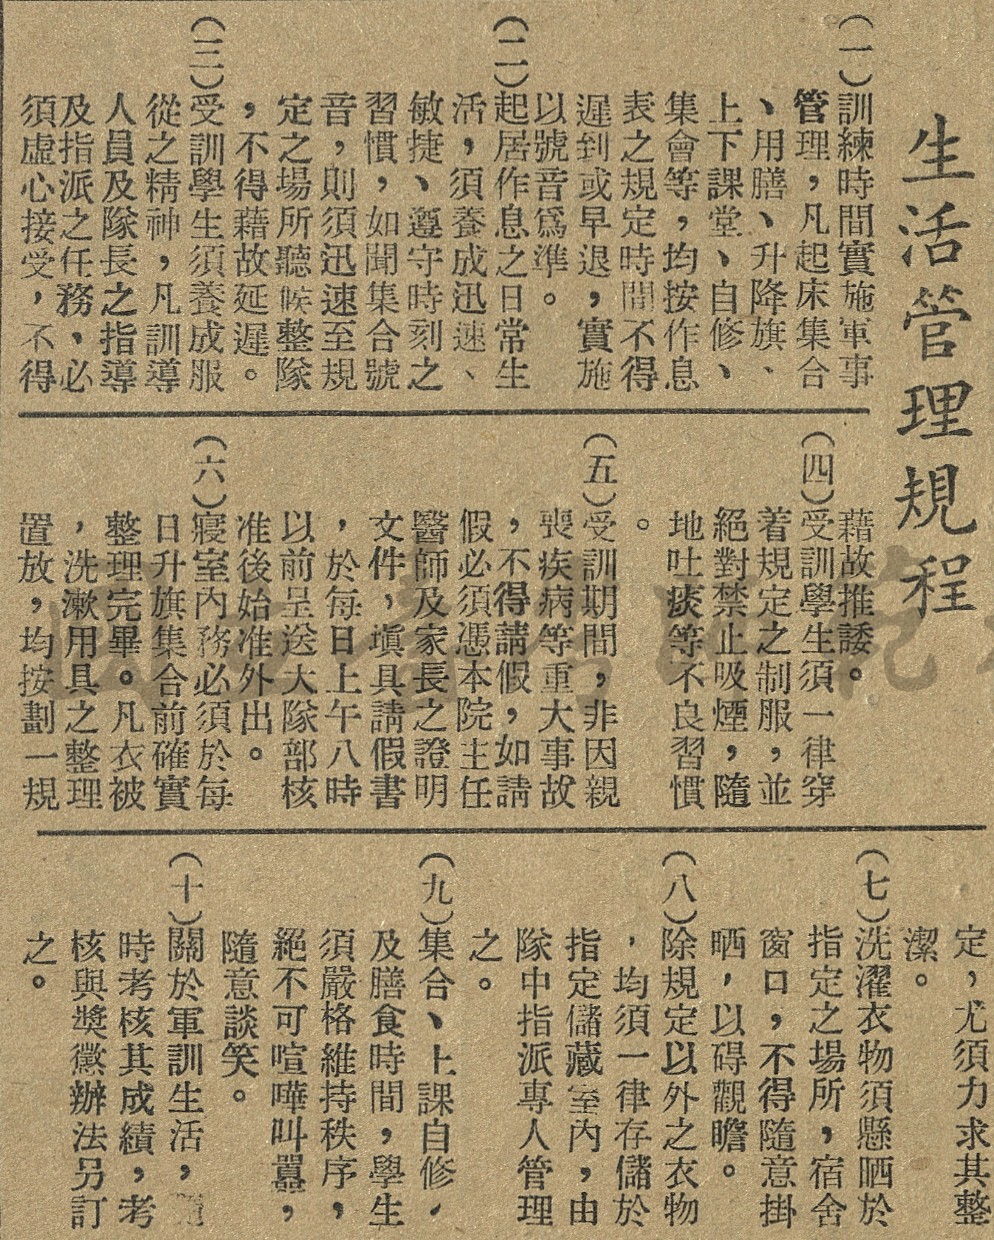 生活管理規程
（一）訓練時間實施軍事
管理，凡起床集合
、用膳、升降旗、
上下課堂、自修、
集會等，均按作息
表之規定時間不得
遲到或早退，實施
以號音爲準。
（二）起居作息之日常生
活，須養成迅速、
敏捷、遵守時刻之
習慣，如聞集合號
音，則須迅速至規
定之場所聽候整隊
，不得藉故延遲。
（三）受訓學生須養成服
從之精神，凡訓導
人員及隊長之指導
及指派之任務、必
須虛心接受，不得
藉故推諉。
（四）受訓學生須一律穿
着規定之制服，並
絕對禁止吸煙，隨
地吐痰等不良習慣
。
（五）受訓期間，非因親
喪疾病等重大事故
，不得請假，如請
假必須憑本院主任
醫師及家長之證明
文件，塡具請假書
，於每日上午八時
以前呈送大隊部核
准後始准外出。
（六）寢室內務必須於每
日升旗集合前確實
整理完畢。凡衣被
，洗漱用具之整理
置放，均按劃一規
定，尤須力求其整
潔。
（七）洗濯衣物須懸晒於
指定之場所，宿舍
窗口，不得隨意掛
晒，以碍觀瞻。
（八）除規定以外之衣物
，均須一律存儲於
指定儲藏室內，由
隊中指派專人管理
之。
（九）集合、上課自修，
及膳食時間，學生
須嚴格維持秩序，
絕不可喧嘩叫囂，
隨意談笑。
（十）關於軍訓生活，
時考核其成績，考
核與獎懲辦法另訂
之。